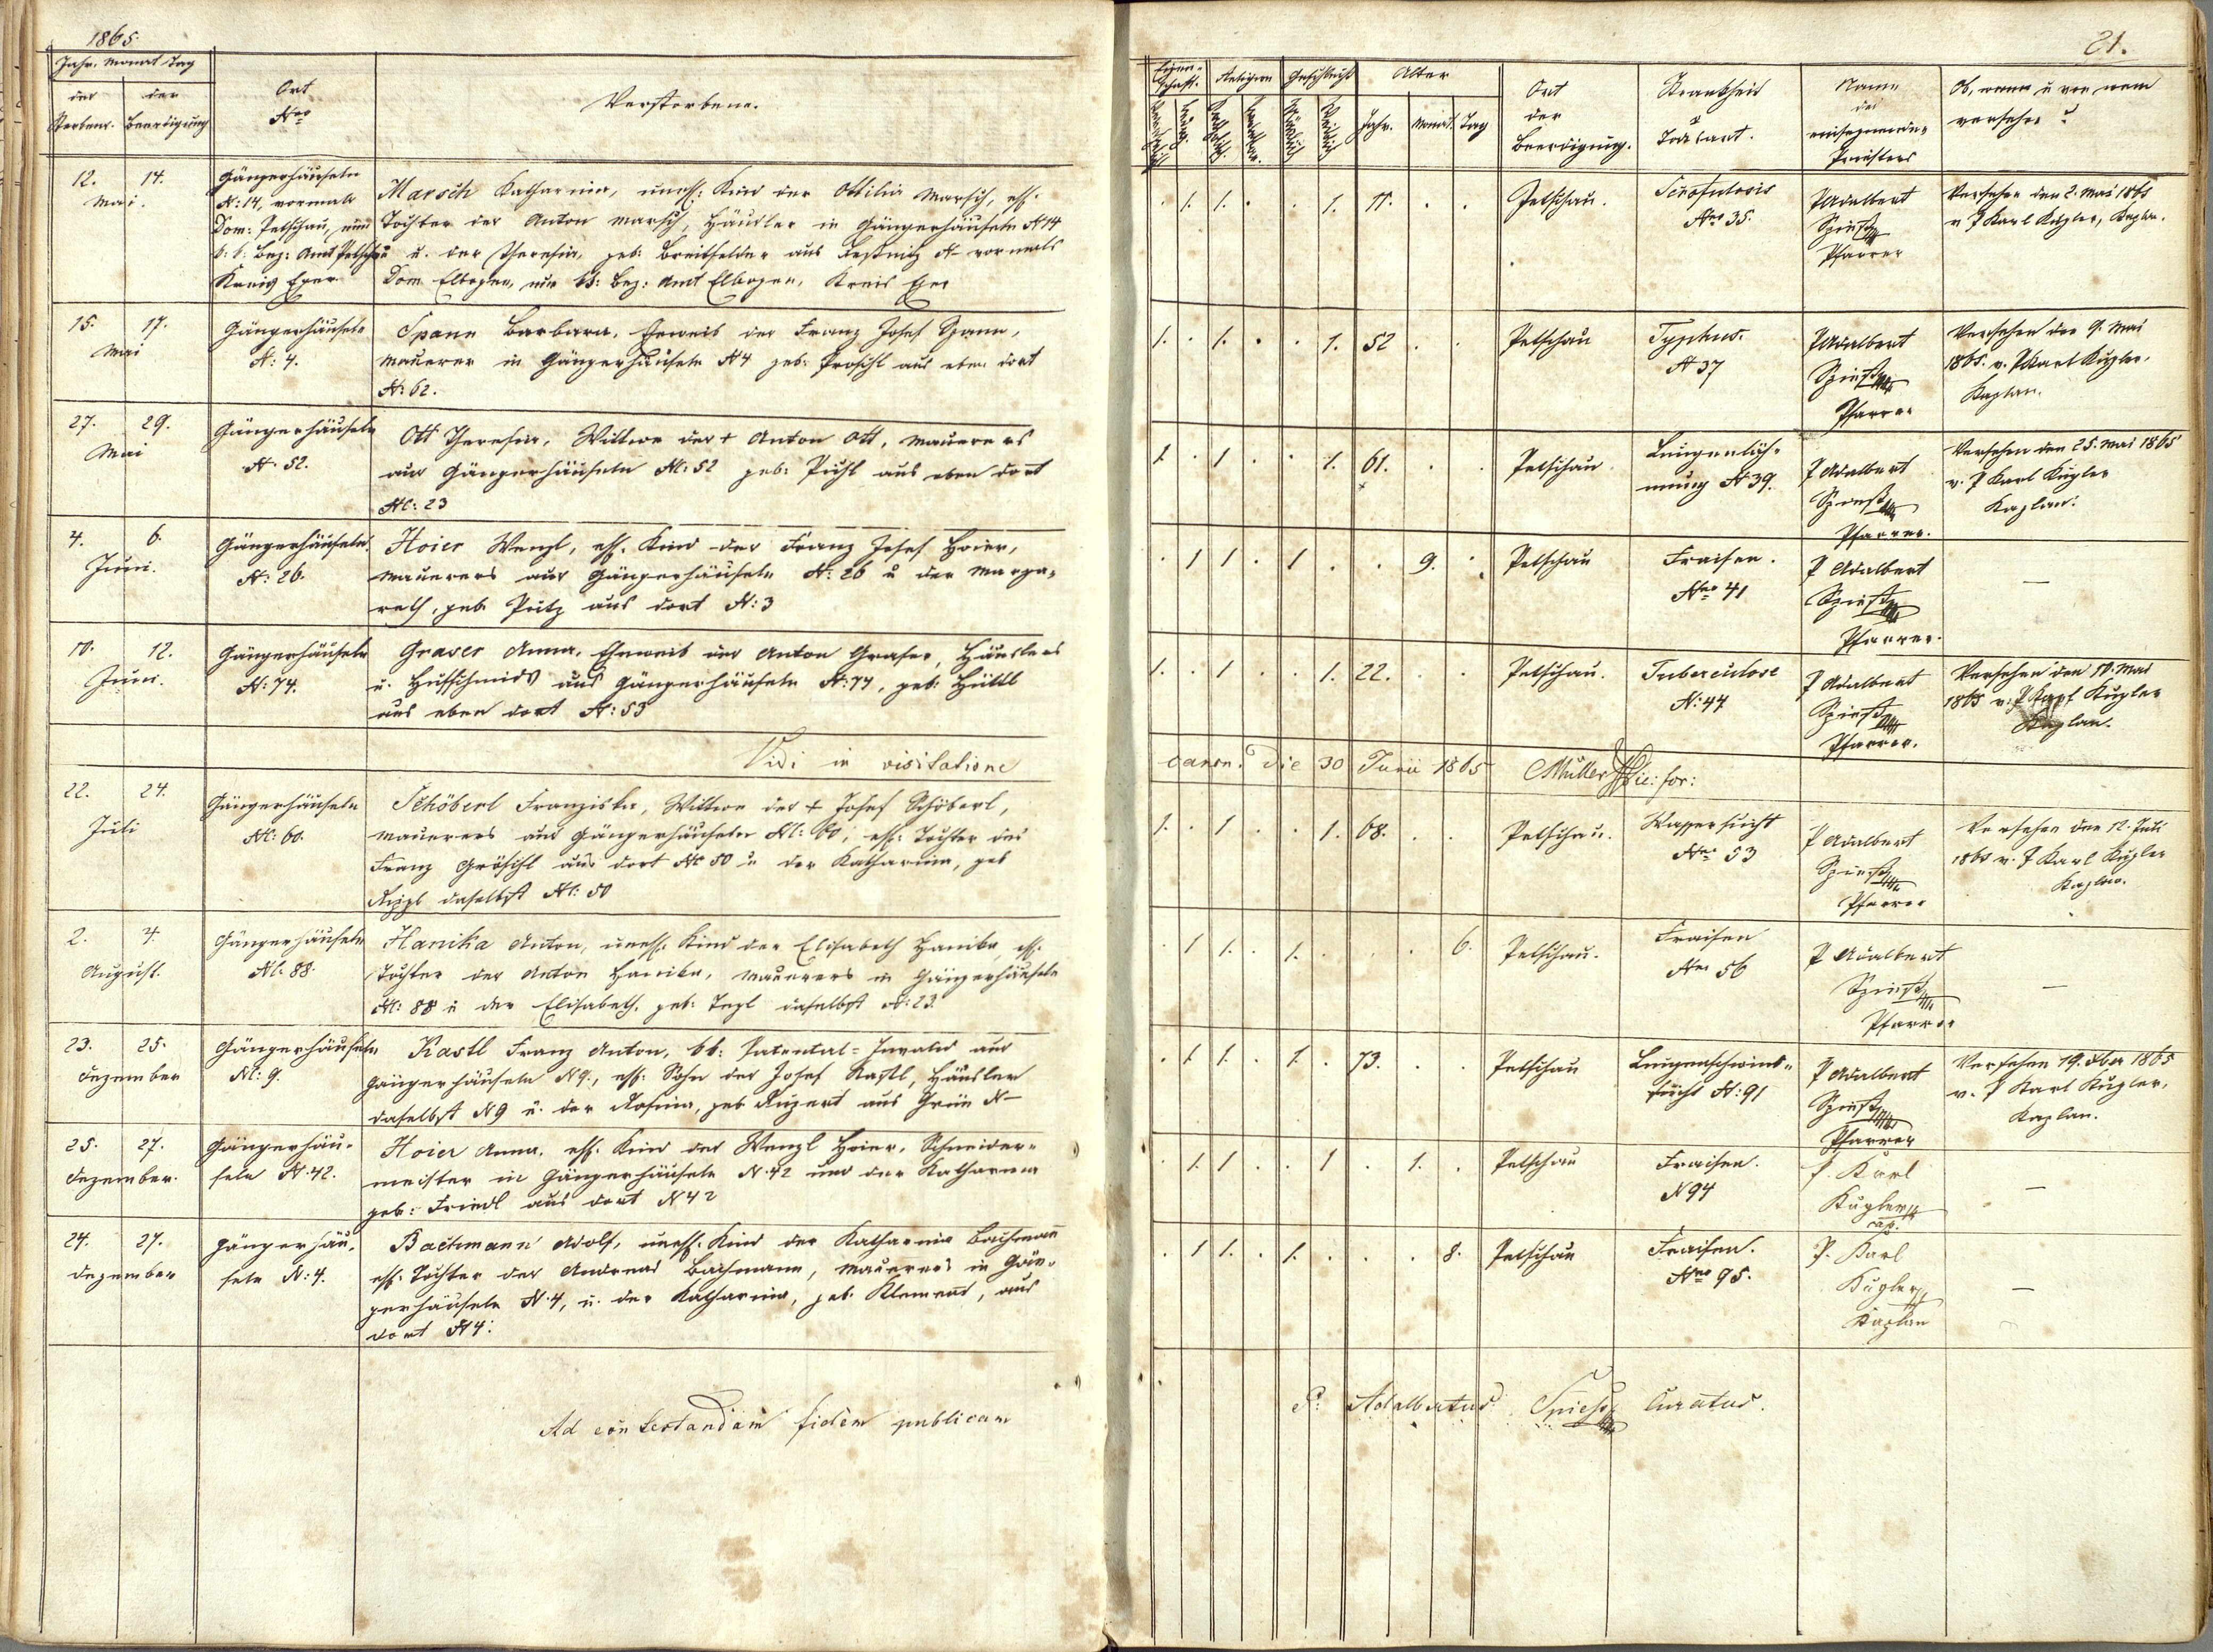 1865.
21.
Jahr, Monat Tag
der Sterbens. der Beerdigung
Ort
Nro
Verstorbene.
Eigenschaft. Religion Geschlecht Alter
Jahr. Monat. Tag
Ort der Beerdigung.
Krankheit u Todesart.
Name des einsegnenden Priesters
Ob, wann u von wem versehen?
12. 14.
Mai.
Gängerhäuseln
N: 14, vormals
Dom: Petschau, nun
k: k: Bez: Amt Petschau
Kreis Eger
Marsch Katharina, unehl. Kind der Ottilia Marsch, ehl.
Tochter des Anton Marsch, Häusler in Gängerhäuseln N 14
u. der Theresia, geb: Breitfelder aus N- vormals
Dom Elbogen, nun kk: Bez: Amt Elbogen, Kreis Eger
. 1. 1. . . 1. 11. . .
Petschau.
Scrofulosis
Nro 35.
P Adalbert
Spieß
Pfarrer
Versehen den 2. Mai 1865
v P Karl Kugler, Kaplan.
15. 17.
Mai
Gängerhäuseln
N: 4.
Spann Barbara, Eheweib des Franz Josef Spann,
Maurer in Gängerhäuseln N 4 geb: Proschl aus eben dort
N: 62.
1. . 1. . . 1. 52 . .
Petschau
Typhus.
N 37
P Adalbert
Spieß
Pfarrer
Versehen den 9. Mai
1865. v. P Karl Kugler,
Kaplan.
27. 29.
Mai
Gängerhäuseln
N. 52.
Ott Theresia, Wittwe des + Anton Ott, Maurers
aus Gängerhäuseln N: 52 geb: Puhl aus eben dort
N: 23
1. . 1 . . 1. 61. . .
Petschau
Lungenläh-
mung N 39.
P Adalbert
Spieß
Pfarrer.
Versehen den 25. Mai 1865
v. P Karl Kugler
Kaplan.
4. 6.
Juni.
Gängerhäuseln.
N: 26.
Hoier Wenzl, ehl. Kind des Franz Josef Hoier,
Maurers aus Gängerhäuseln N: 26 u der Marga-
reth, geb Pritz aus dort N: 3
. 1 1 . 1 . . 9. .
Petschau
Fraisen.
Nro 41
P Adalbert
Spieß
Pfarrer.
—
10. 12.
Juni.
Gängerhäuseln
N: 74.
Graser Anna, Eheweib des Anton Graser, Häuslers
u. Hufschmids aus Gängerhäuseln N: 74, geb: Hüttl
aus eben dort N: 53
1. . 1 . . 1. 22. . .
Petschau.
Tuberculose
N: 47
P Adalbert
Spieß
Pfarrer.
Versehen den 10. Mai
1865 v. P Karl Kugler
Kaplan.
Vidi in visitatione canon: die 30 Junii 1865 Müller Vic: for:
22. 24.
Juli
Gängerhäuseln
N: 60.
Schöberl Franziska, Wittwe des + Josef Schöberl,
Maurers aus Gängerhäuseln N: 60, ehl: Tochter des
Franz Gröschl aus dort N 50 u der Katharina, geb
daselbst N: 50
1. . 1 . . 1. 68. . .
Petschau.
Wassersucht
Nro 53
P Adalbert
Spieß
Pfarrer
Versehen den 12. Juli
1865 v. P Karl Kugler
Kaplan.
2. 4.
August.
Gängerhäuseln
N: 88.
Hanika Anton, unehl. Kind der Elisabeth Hanika, ehl.
Tochter des Anton Hanika, Maurers in Gängerhäuseln
N: 88 u der Elisabeth, geb: daselbst N: 23.
. 1 1. . 1. . . . 6.
Petschau.
Fraisen
Nro 56
P Adalbert
Spieß
Pfarrer
—
23. 25.
Dezember
Gängerhäuseln
N: 9.
Kastl Franz Anton, kk: Patental-Invalid aus
Gängerhäuseln N 9., ehl: Sohn des Josef Kastl, Häusler
daselbst N 9 u. der Rosina, geb aus Grün N-
. 1. 1. . 1. . 73. . .
Petschau
Lungenschwind-
sucht N: 91
P Adalbert
Spieß
Pfarrer
Versehen 19. Xber 1865
v. P Karl Kugler,
Kaplan.
25. 27.
Dezember.
Gängerhäu-
seln N: 42.
Hoier Anna, ehl. Kind des Wenzl Hoier, Schneider-
meister in Gängerhäuseln N. 42 und der Katharina
geb: Friedl aus dort N 42
. 1. 1 . . 1 . 1. .
Petschau
Fraisen.
N 94
P. Karl
Kugler
cap.
—
24. 27.
Dezember
Gängerhäu-
seln N: 4.
Bachmann Adolf, unehl. Kind der Katharina Bachmann
ehl. Tochter des Andreas Bachmann, Maurers in Gän-
gerhäuseln N. 4, u. der Katharina, geb. Klement, aus
dort N 4.
. 1 1. . 1. . . . 8.
Petschau
Fraisen.
Nro 95.
P. Karl
Kugler
Kaplan
—
Ad contestandam fidem publicam P: Adalbertus Spieß Curatus.